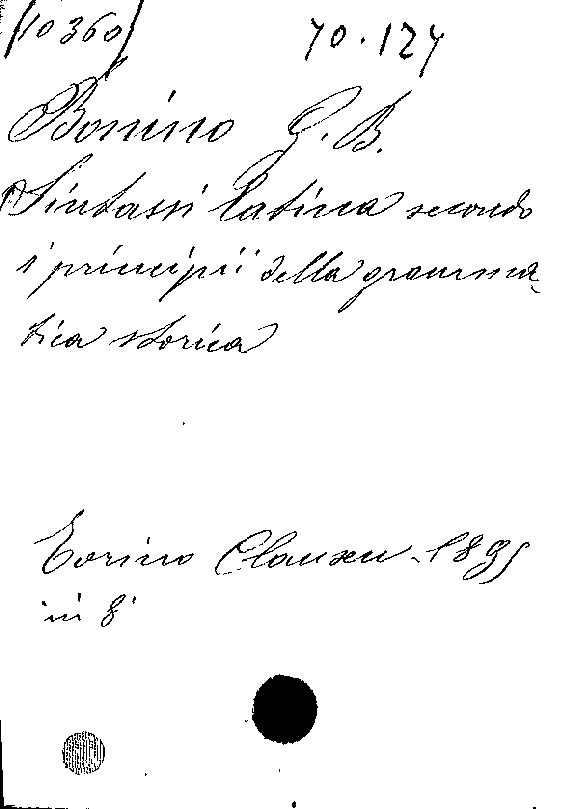 (10360)
70.124
Bonino G. B.
Sintassi latina secondo
i principii della gramma-
tica storica
Torino Clausen 1895
in 8°